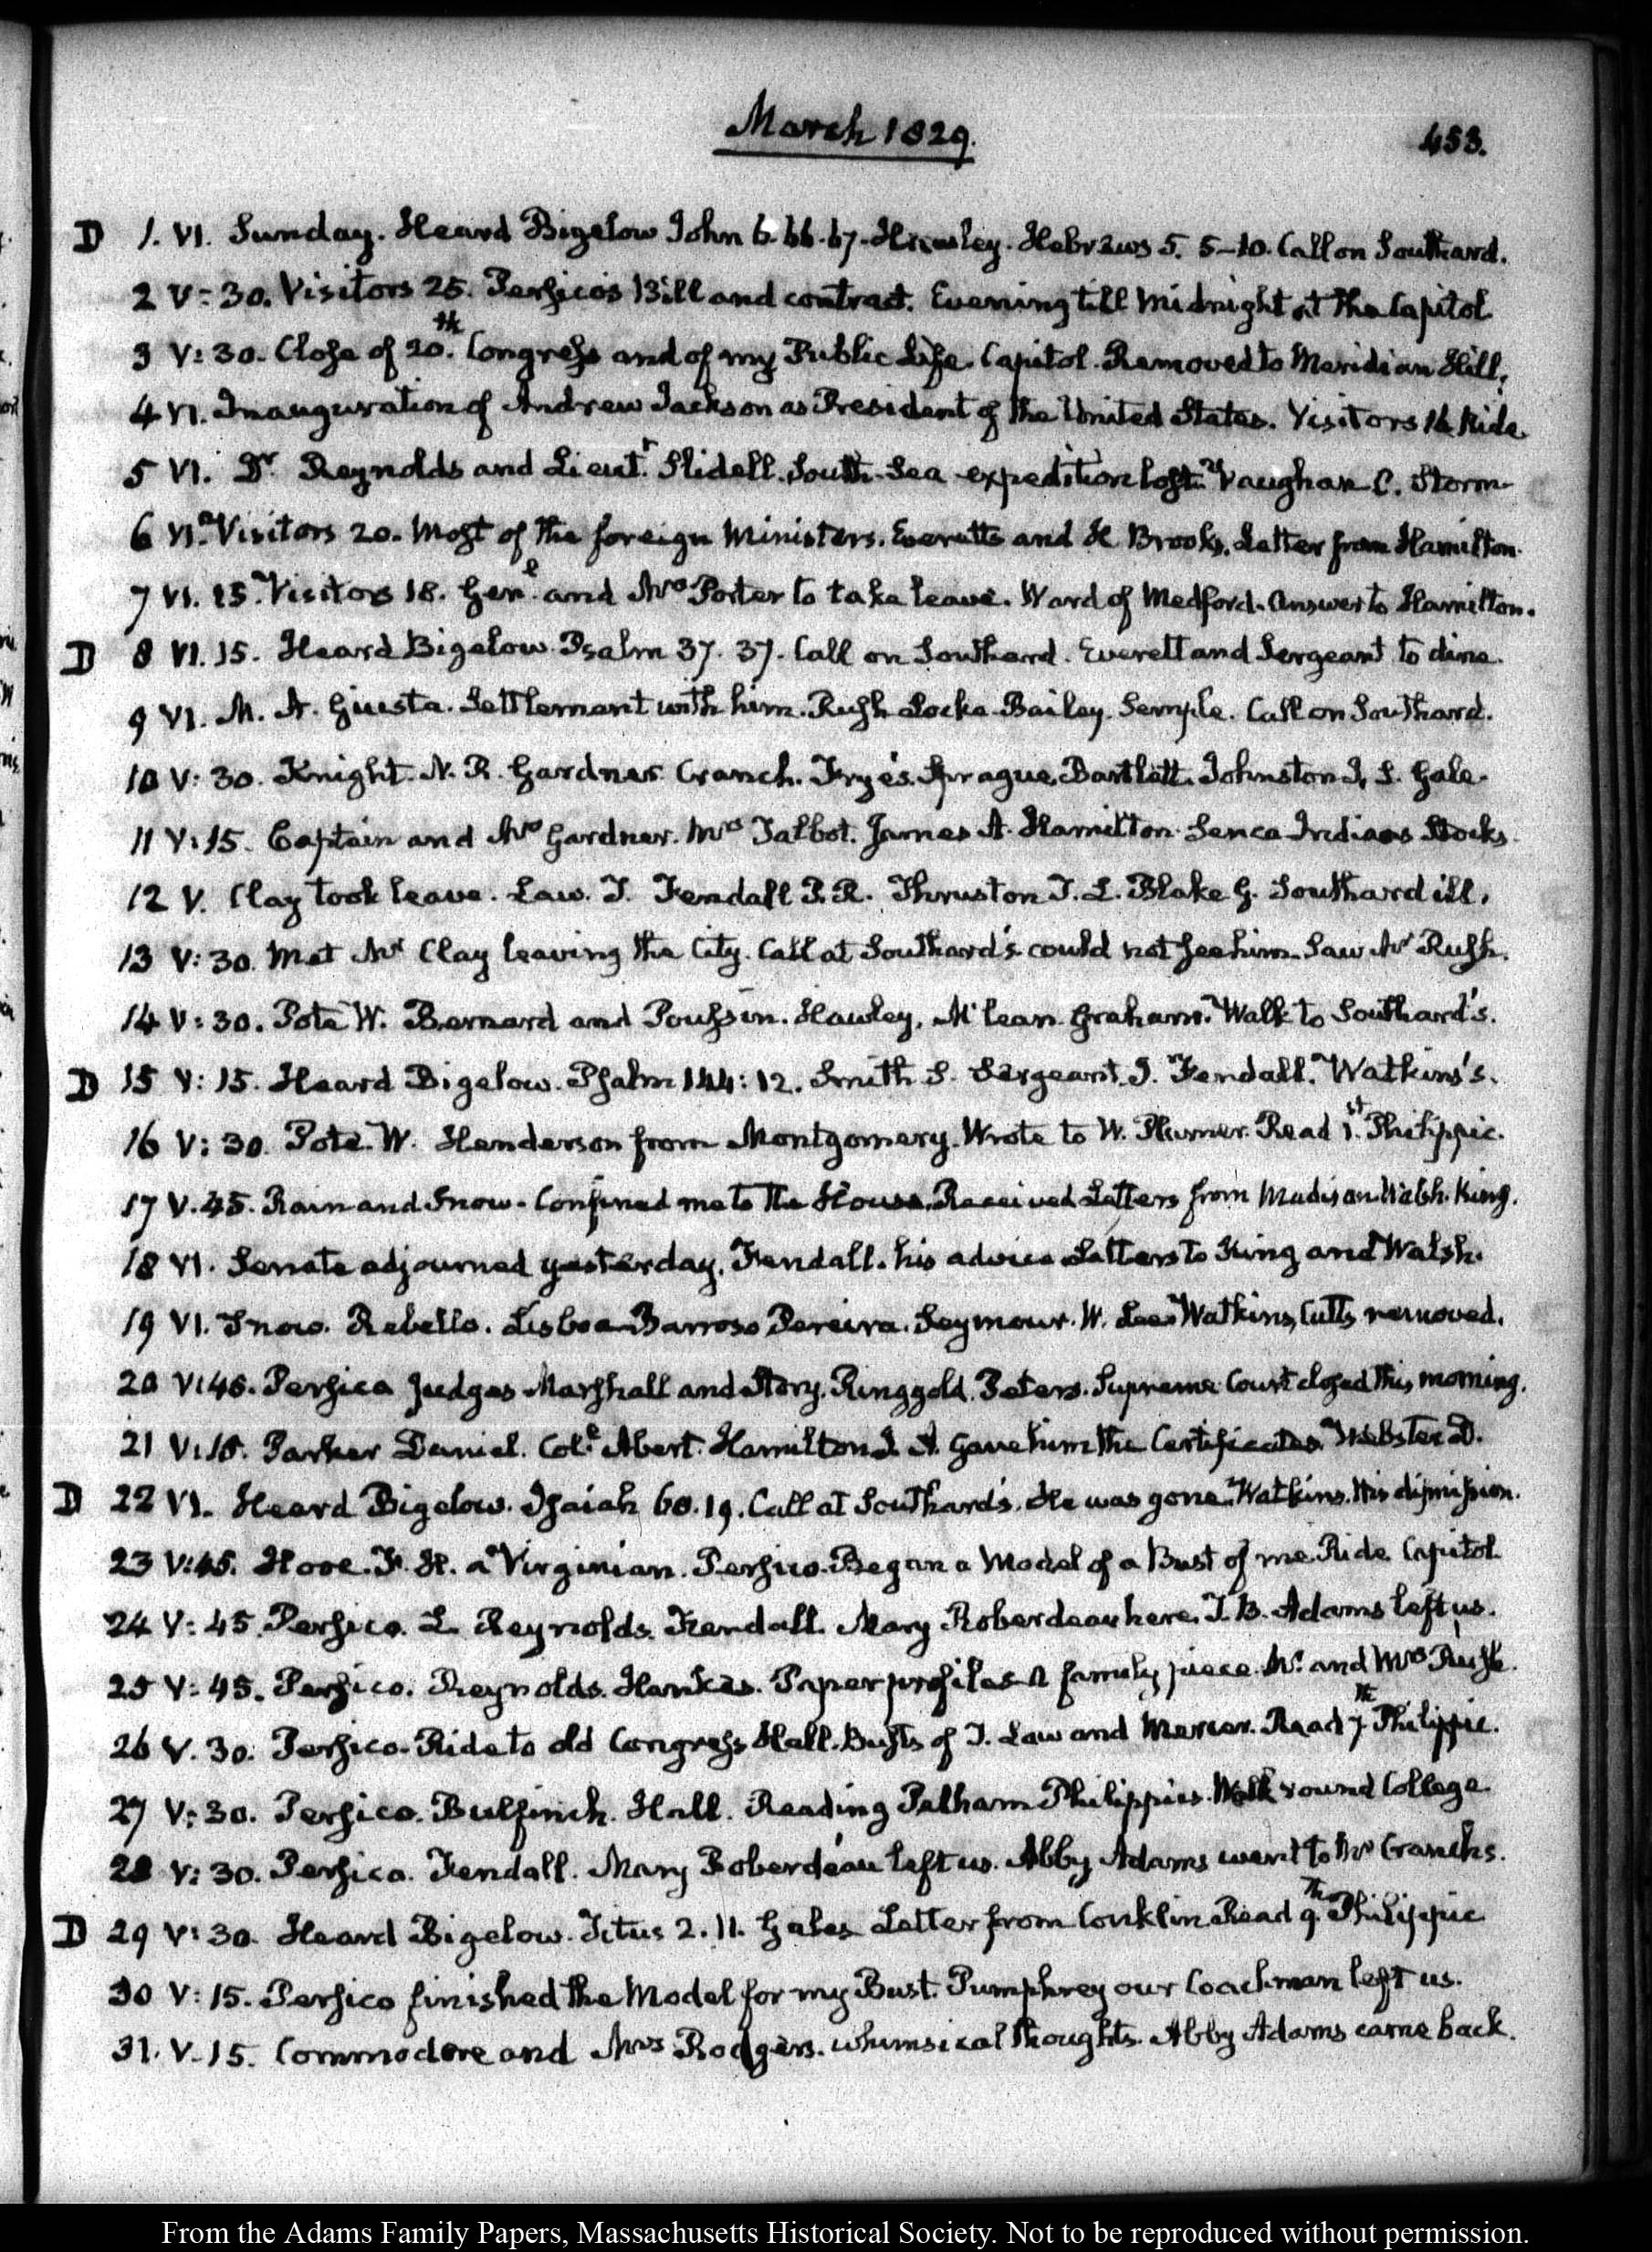 March 1829.
453.
D 1. VI. Sunday. Heard Bigelow John 6. 66. 67. Hawley. Hebrews 5. 5-10. Call on Southard.
2 V: 30. Visitors 25. Persico's Bill and contract. Evening till midnight at the Capitol
3 V: 30. Close of 20.th Congress and of my Public Life. Capitol. Removed to Meridian Hill.
4 VI. Inauguration of Andrew Jackson as President of the United States. Visitors 16 Ride
5 VI. Dr. Reynolds and Lieut.t Slidell. South-Sea expedition lost. Vaughan C. Storm
6 VI. Visitors 20. Most of the foreign Ministers. Everetts and Brooks. Letter from Hamilton.
7 VI. 15. Visitors 18. Gen.l and Mrs Porter to take leave. Ward of Medford. Answer to Hamilton.
D 8 VI. 15. Heard Bigelow. Psalm 37. 37. Call on Southard. Everett and Sergeant to dine.
9 VI. M. A. Giusta. Settlement with him. Rush Locke. Bailey. Semple. Call on Southard.
10 V: 30. Knight. N. R. Gardner. Cranch. Frye's. Sprague. Bartlett. Johnston J. S. Gale.
11 V: 15. Captain and Mrs Gardner. Mrs Talbot. James A. Hamilton. Seneca Indians Stocks.
12 V. Clay took leave. Law. T. Fendall P. R. Thruston T. L. Blake G. Southard ill.
13 V: 30. Met Mr Clay leaving the City. Call at Southard's. could not see him. Saw Mr Rush.
14 V: 30. Pote W. Bernard and Poussin. Hawley. McLean. Graham. Walk to Southard's.
D 15 V: 15. Heard Bigelow. Psalm 144: 12. Smith S. Sergeant. J. Fendall. Watkins's.
16 V: 30. Pote. W. Henderson from Montgomery. Wrote to W. Plumer. Read 1.st Philippic.
17 V. 45. Rain and Snow. Confined me to the House. Received Letters from Madison. Walsh. King.
18 VI. Senate adjourned yesterday. Fendall. his advice Letters to King and Walsh.
19 VI. Snow. Rebello. Lisboa Barroso Pereira. Seymour. W. Lee. Watkins, Cutts removed.
20 V: 45. Persico Judges Marshall and Story. Ringgold. Peters. Supreme Court closed this morning.
21 V: 15. Parker Daniel. Col.l Abert. Hamilton J. A. Gave him the Certificates. Webster D.
D 22 VI. Heard Bigelow. Isaiah 60. 19. Call at Southard's. He was gone. Watkins. His dismission.
23 V: 45. Hove. a Virginian. Persico. Began a Model of a Bust of me. Ride Capitol
24 V: 45. Persico. L. Reynolds. Fendall. Mary Roberdeau here. T. B. Adams left us.
25 V: 45. Persico. Reynolds. Hankes. Paper profiles A family piece. Mr. and Mrs Rush.
26 V. 30. Persico. Ride to old Congress Hall. Busts of T. Law and Mercer. Read 7.th Philippic.
27 V: 30. Persico. Bulfinch. Hall. Reading Pelham Philippics. Walk round College
28 V: 30. Persico. Fendall. Mary Roberdeau left us. Abby Adams went to Mr Cranch's.
D 29 V: 30. Heard Bigelow. Titus 2. 11. Gales Letter from Conklin. Read 9.th Philippic
30 V: 15. Persico finished the Model for my Bust. Pumphrey our Coachman left us.
31. V. 15. Commodore and Mrs Rodgers. whimsical thoughts. Abby Adams came back.
From the Adams Family Papers, Massachusetts Historical Society. Not to be reproduced without permission.